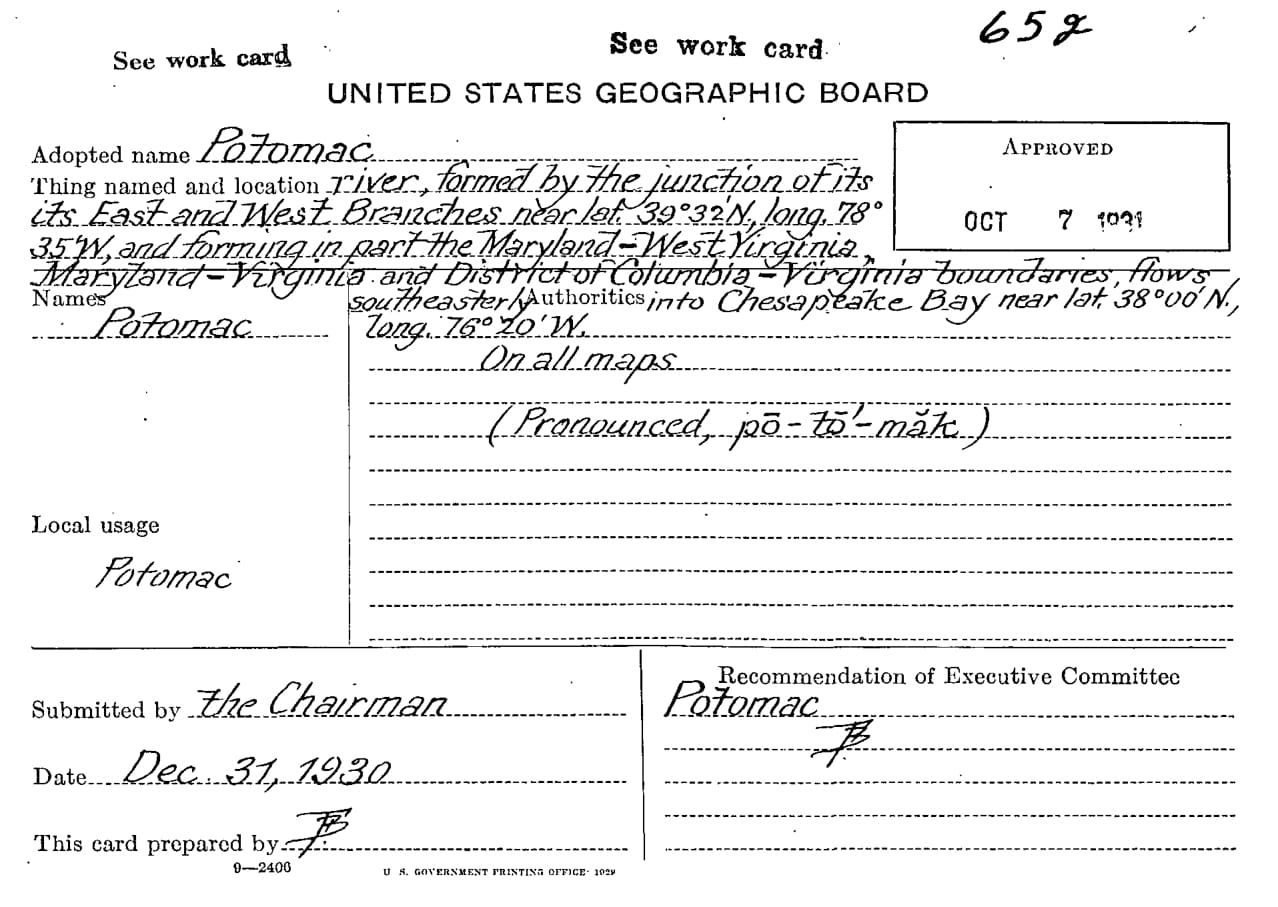 652
See work card
See work card
UNITED STATES GEOGRAPHIC BOARD
Adopted name Potomac
APPROVED
OCT 7 1931
Thing named and location river, formed by the junction of its
its East and West Branches near lat. 39°32'N., long. 78°
35'W, and forming in part the Maryland-West Virginia,
Maryland-Virginia and District of Columbia-Virginia boundaries, flows
southeasterly into Chesapeake Bay near lat. 38°00'N.,
long. 76°20'W.
Names
Authorities
Potomac
On all maps
(Pronounced, pō-tō'-măk)
Local usage
Potomac
Submitted by the Chairman
Date Dec. 31, 1930
This card prepared by
Recommendation of Executive Committee
Potomac
9—2406
U. S. GOVERNMENT PRINTING OFFICE: 1929